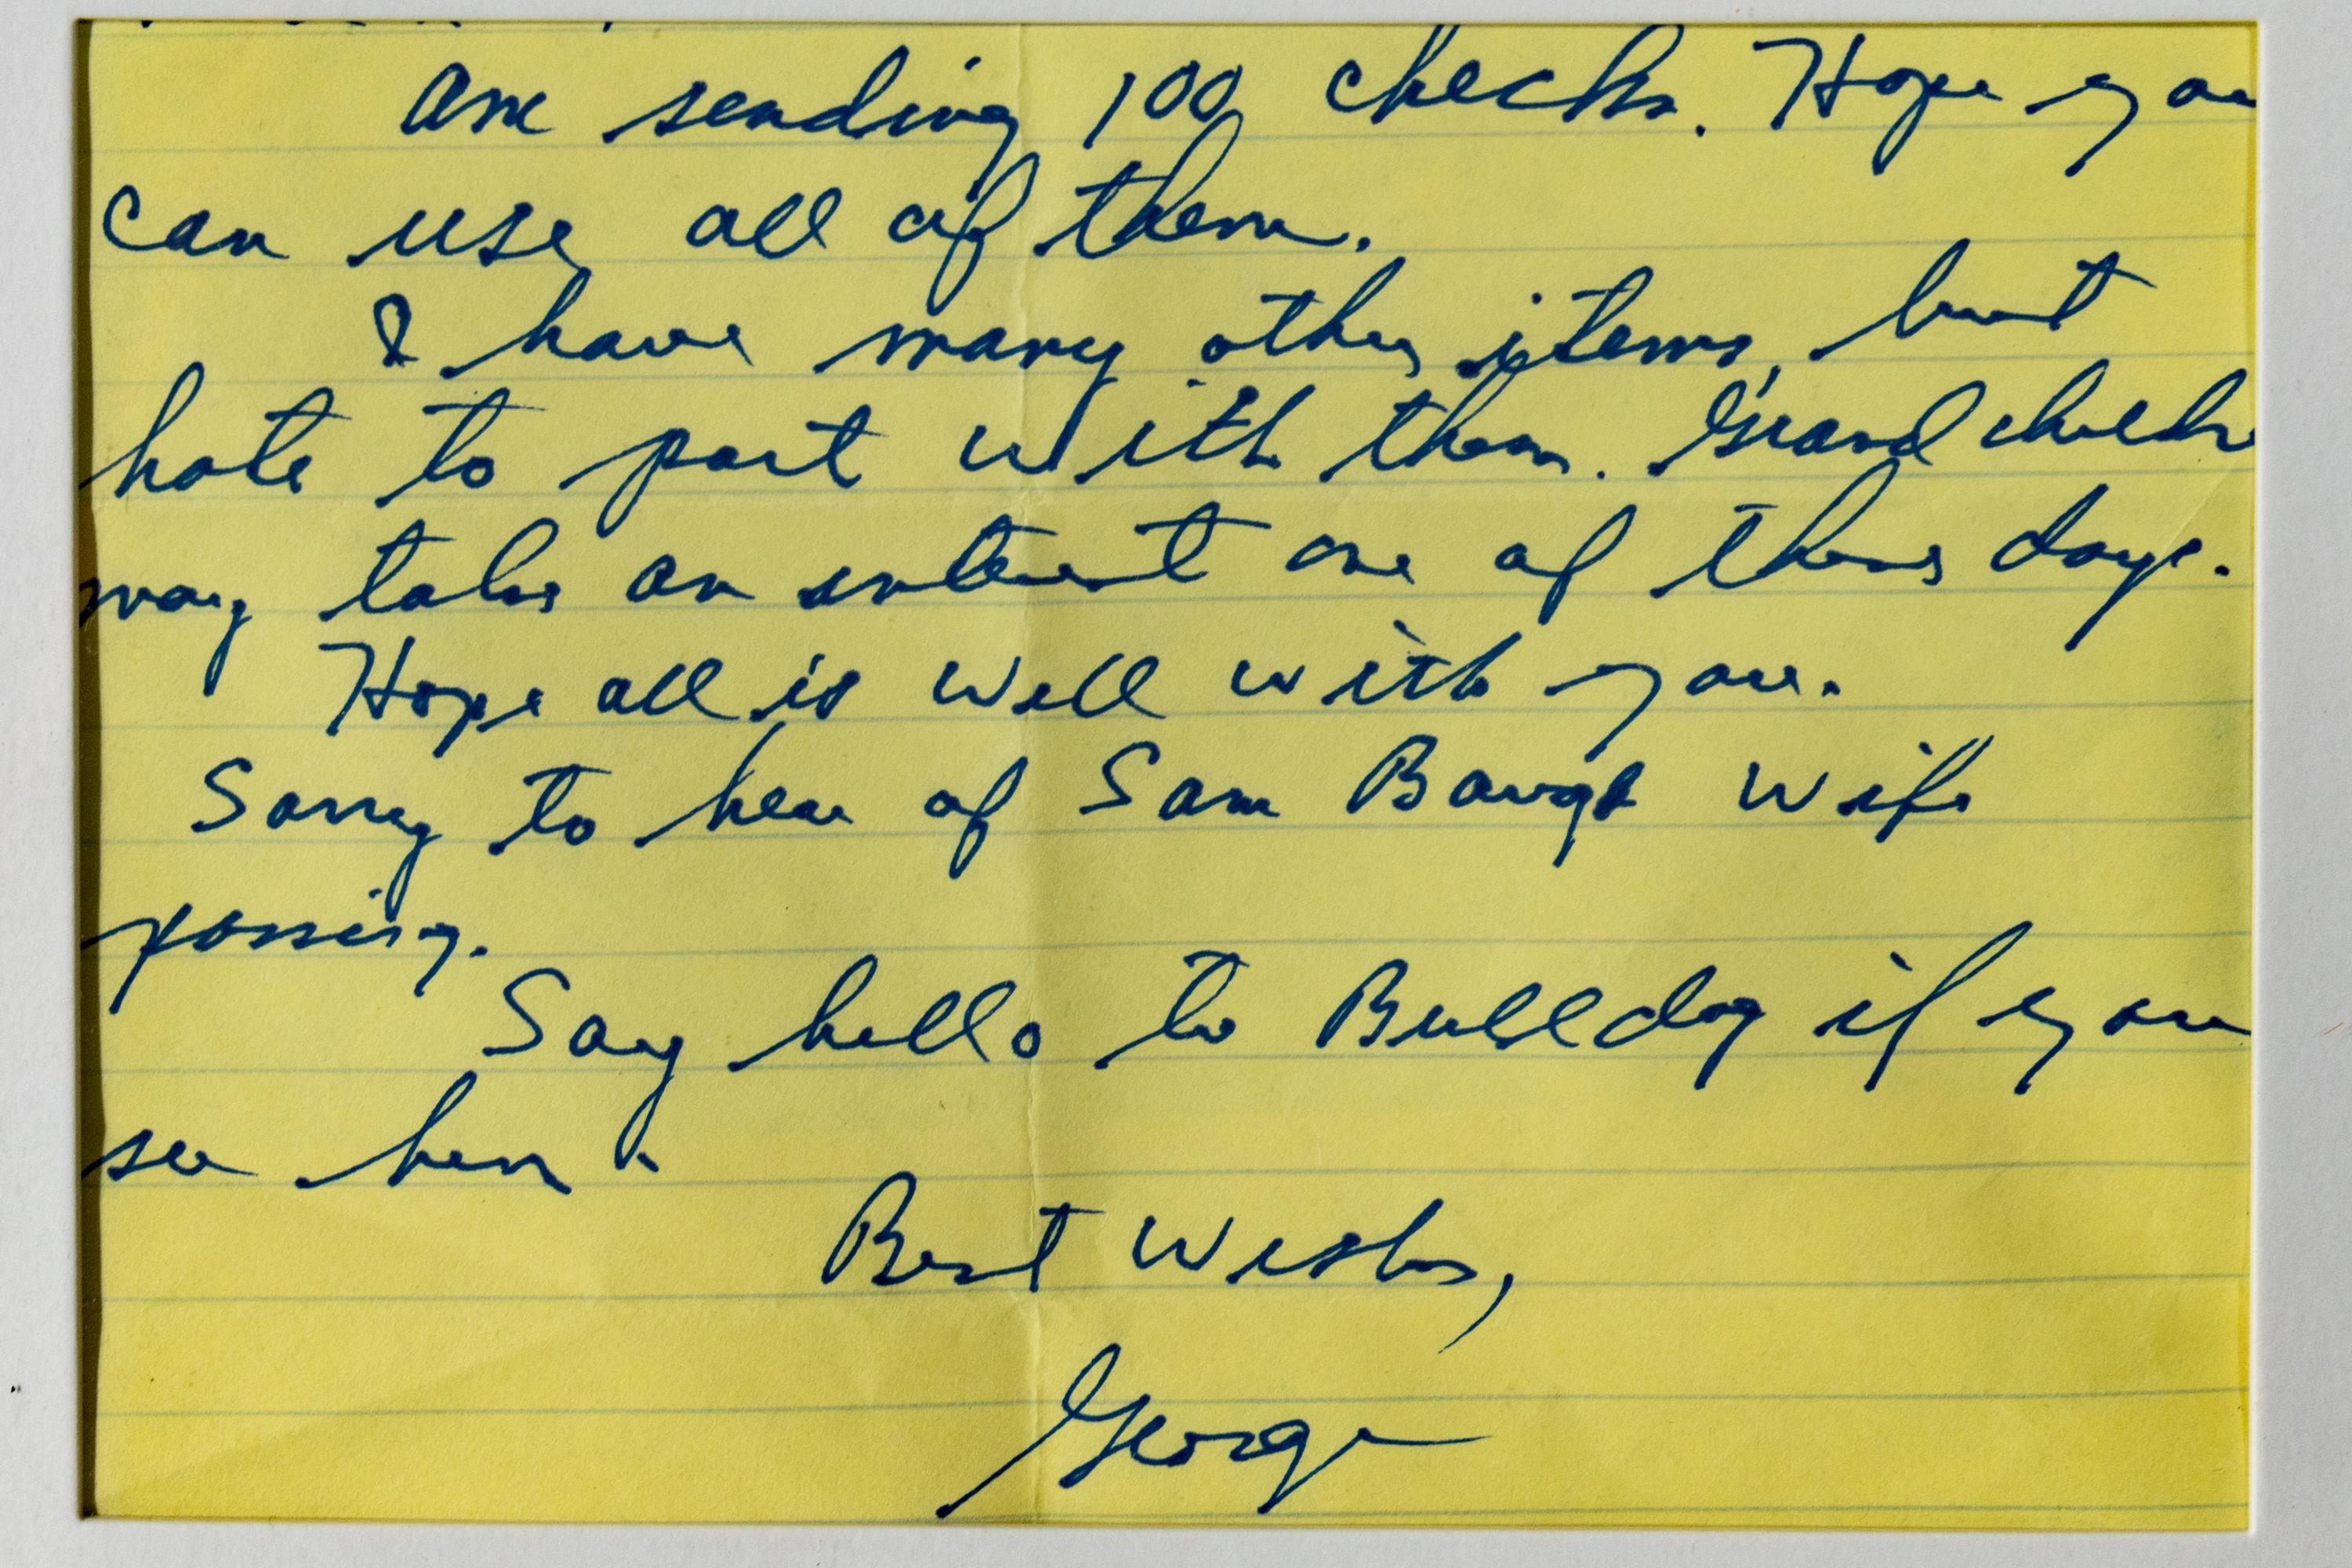 Am sending 100 checks. Hope you
can use all of them.
I have many other items, but
hate to part with them. Grand childr
may take an interest one of these days.
Hope all is well with you.
Sorry to hear of Sam Baugh wife
passing.
Say hello to Bulldog if you
see him.
Best Wishes,
George